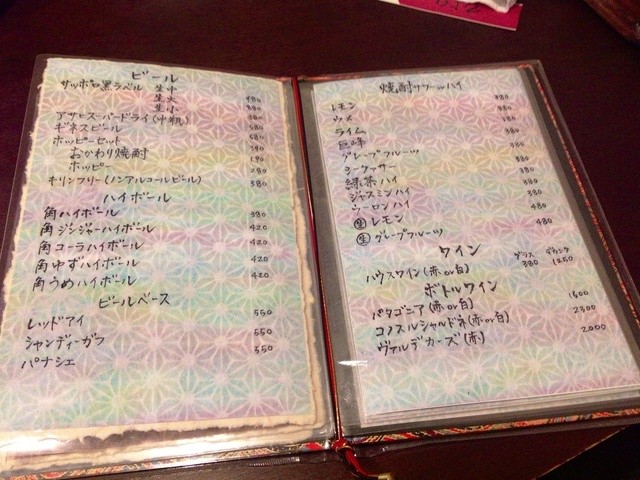 ビール
サッポロ黒ラベル 生中 480
生大
生小
アサヒスーパードライ(中瓶)
ギネスビール 680
ホッピーセット
おかわり焼酎
ホッピー
キリンフリー(ノンアルコールビール) 380
ハイボール
角ハイボール 380
角ジンジャーハイボール 420
角コーラハイボール 420
角ゆずハイボール 420
角うめハイボール 420
ビールベース
レッドアイ 550
シャンディーガフ 550
パナシェ 550
焼酎サワーorハイ
レモン 380
ウメ 380
ライム 380
巨峰 380
グレープフルーツ
シークァサー 380
緑茶ハイ 380
ジャスミンハイ 380
ウーロンハイ 380
生レモン 480
生グレープフルーツ 480
ワイン
グラス デカンタ
ハウスワイン(赤or白) 380 1250
ボトルワイン
パタゴニア(赤or白) 1600
コノスルシャルドネ(赤or白) 2300
ヴァルデカーズ(赤) 2000